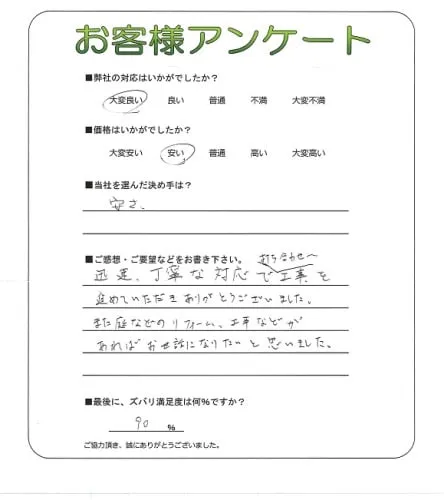 お客様アンケート
■弊社の対応はいかがでしたか?
大変良い 良い 普通 不満 大変不満
■価格はいかがでしたか?
大変安い 安い 普通 高い 大変高い
■当社を選んだ決め手は?
安さ、
■ご感想・ご要望などをお書き下さい。 打ち合わせ〜
迅速、丁寧な対応で工事を
進めていただきありがとうございました。
また庭などのリフォーム、工事などが
あればお世話になりたいと思いました。
■最後に、ズバリ満足度は何%ですか?
90 %
ご協力頂き、誠にありがとうございました。